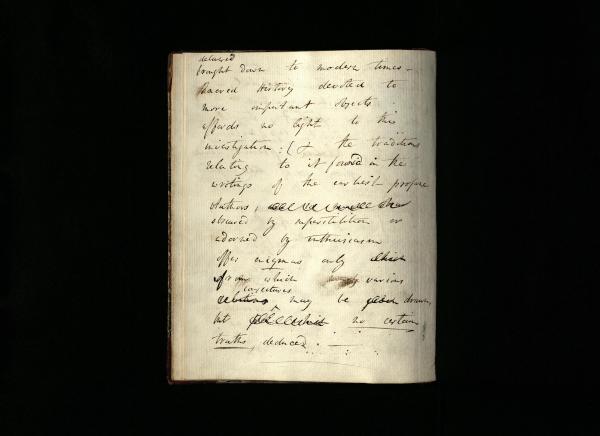 delivered
brought down to modern times -
Sacred History devoted to
more important objects
affords no light to this
investigation : (& the traditions
relating to it found in the
writings of the earliest profane
Authors,
obscured by superstition or
adorned by enthusiasm
offer enigmas only which
from which various
conjectures
may be drawn,
but no certain
truths, deduced. —